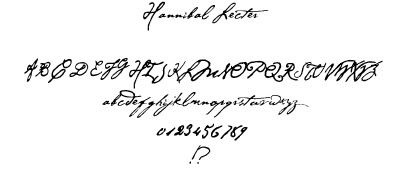 Hannibal Lecter
ABCDEFGHIJKLMNOPQRSTUVWXYZ
abcdefghijklmnopqrstuvwxyz
0123456789
!?